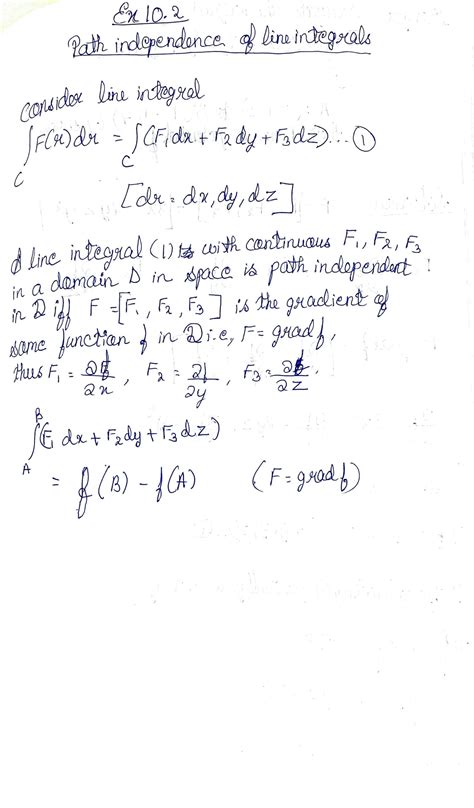 Ex 10.2
Path independence of line integrals
Consider line integral
∫F(r)dr = ∫(F₁dx + F₂dy + F₃dz)...①
C C
[dr = dx, dy, dz]
A line integral (1) with continuous F₁, F₂, F₃
in a domain D in space is path independent :
in D iff F = [F₁, F₂, F₃] is the gradient of
some function f in D i.e, F = grad f,
thus F₁ = ∂f/∂x, F₂ = ∂f/∂y, F₃ = ∂f/∂z.
B
∫(F₁ dx + F₂dy + F₃dz)
A
= f(B) - f(A) (F = grad f)